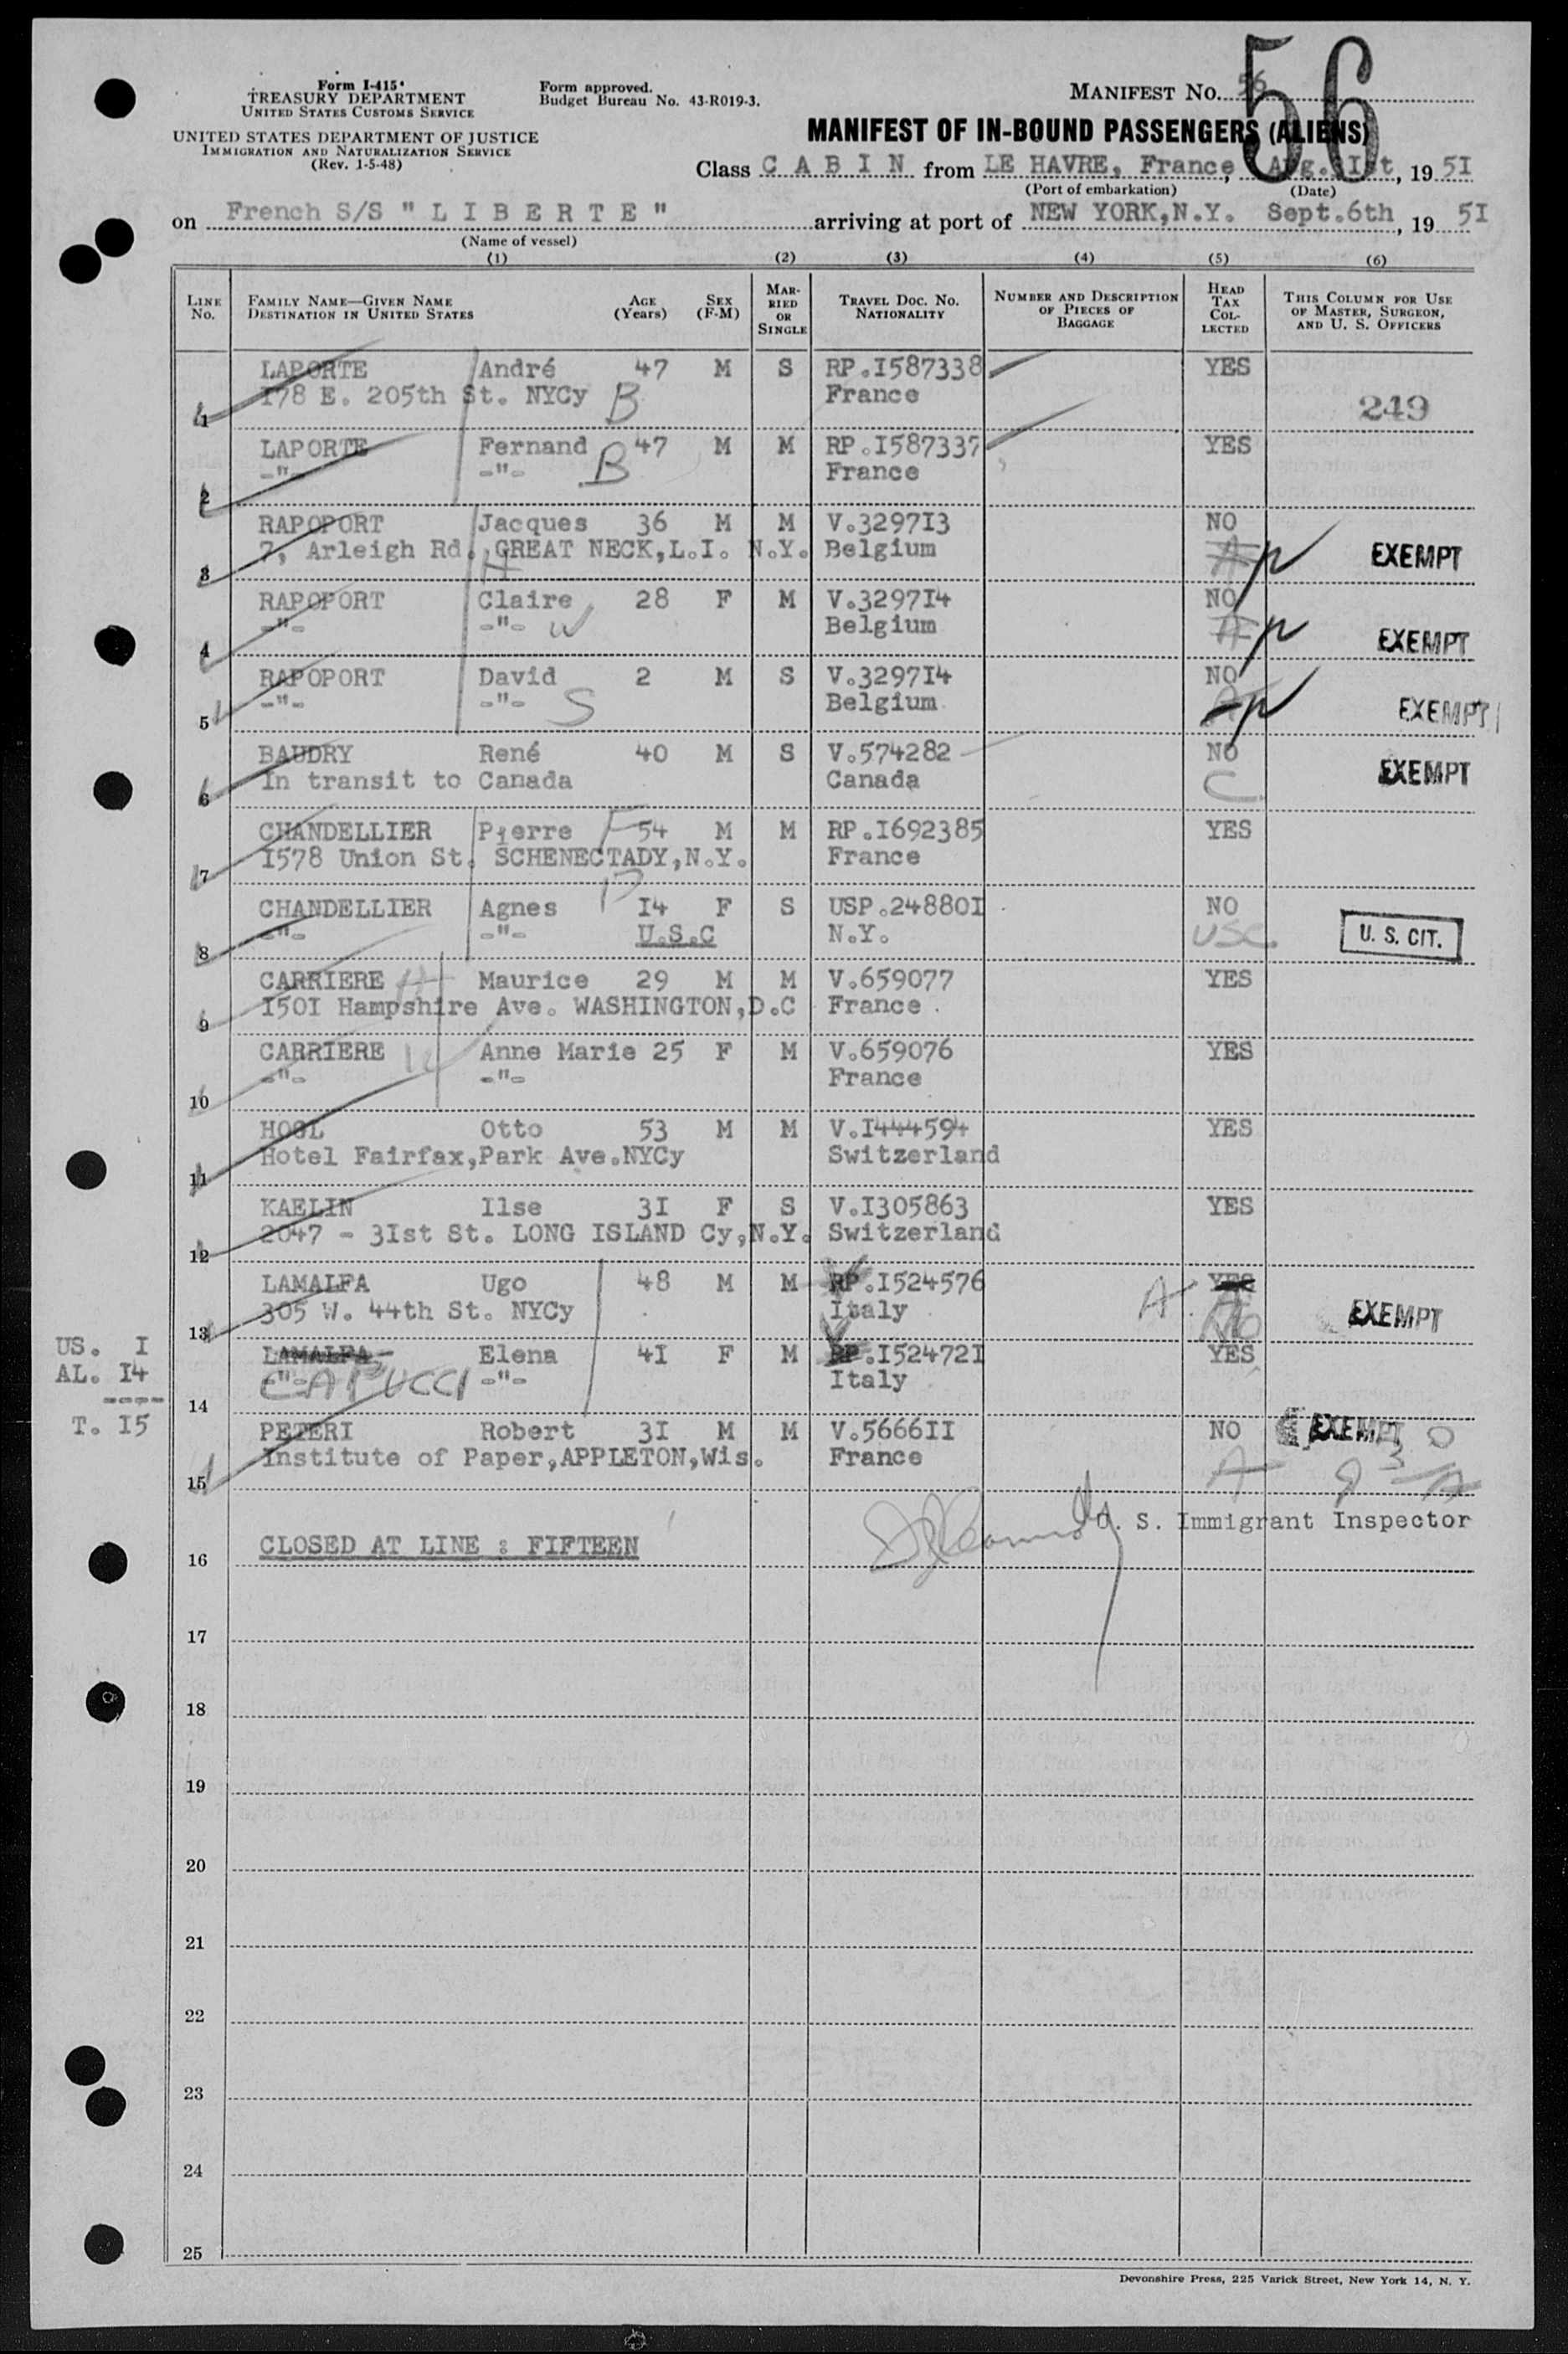 Form I-415
TREASURY DEPARTMENT
UNITED STATES CUSTOMS SERVICE
UNITED STATES DEPARTMENT OF JUSTICE
IMMIGRATION AND NATURALIZATION SERVICE
(Rev. 1-5-48)
Form approved.
Budget Bureau No. 43-R019-3.
MANIFEST No. 56
56
MANIFEST OF IN-BOUND PASSENGERS (ALIENS)
Class C A B I N from LE HAVRE, France, 19 5I
(Port of embarkation) (Date)
on French S/S " L I B E R T E " arriving at port of NEW YORK,N.Y. Sept.6th, 19 5I
(Name of vessel)
(1) (2) (3) (4) (5) (6)
LINE No. FAMILY NAME—GIVEN NAME DESTINATION IN UNITED STATES AGE (Years) SEX (F-M) MARRIED OR SINGLE TRAVEL DOC. No. NATIONALITY NUMBER AND DESCRIPTION OF PIECES OF BAGGAGE HEAD TAX COLLECTED THIS COLUMN FOR USE OF MASTER, SURGEON, AND U. S. OFFICERS
1 LAPORTE André 47 M S RP.I587338 YES
178 E. 205th St. NYCy B France 249
2 LAPORTE Fernand 47 M M RP.I587337 YES
-"- -"- B France
3 RAPOPORT Jacques 36 M M V.3297I3 NO
7, Arleigh Rd. GREAT NECK,L.I. N.Y. Belgium EXEMPT
H
4 RAPOPORT Claire 28 F M V.3297I4 NO
-"- -"- W Belgium EXEMPT
5 RAPOPORT David 2 M S V.3297I4 NO
-"- -"- S Belgium EXEMPT
6 BAUDRY René 40 M S V.574282 NO
In transit to Canada Canada C EXEMPT
7 CHANDELLIER Pierre F 54 M M RP.I692385 YES
I578 Union St. SCHENECTADY,N.Y. France
8 CHANDELLIER Agnes D I4 F S USP.24880I NO
-"- -"- U.S.C N.Y. USC U. S. CIT.
9 CARRIERE H Maurice 29 M M V.659077 YES
I50I Hampshire Ave. WASHINGTON,D.C France
10 CARRIERE W Anne Marie 25 F M V.659076 YES
-"- -"- France
11 HOGL Otto 53 M M V.I44459+ YES
Hotel Fairfax,Park Ave.NYCy Switzerland
12 KAELIN Ilse 3I F S V.I305863 YES
2047 - 3Ist St. LONG ISLAND Cy,N.Y. Switzerland
13 LAMALFA Ugo 48 M M RP.I524576 A YES
305 W. 44th St. NYCy Italy No EXEMPT
14 LAMALFA Elena 4I F M RP.I52472I YES
-"- CAPUCCI -"- Italy
15 PETERI Robert 3I M M V.5666II NO EXEMPT
Institute of Paper,APPLETON,Wis. France A
US. I
AL. I4
----
T. I5
U. S. Immigrant Inspector
16 CLOSED AT LINE : FIFTEEN
17
18
19
20
21
22
23
24
25
Devonshire Press, 225 Varick Street, New York 14, N. Y.